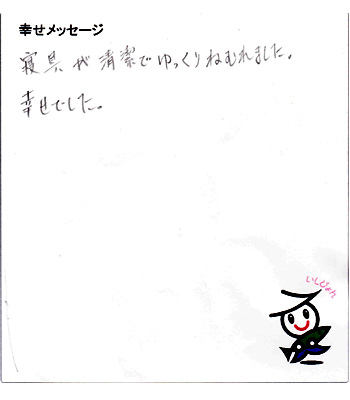 幸せメッセージ
寝具が清潔でゆっくりねむれました。
幸せでした。